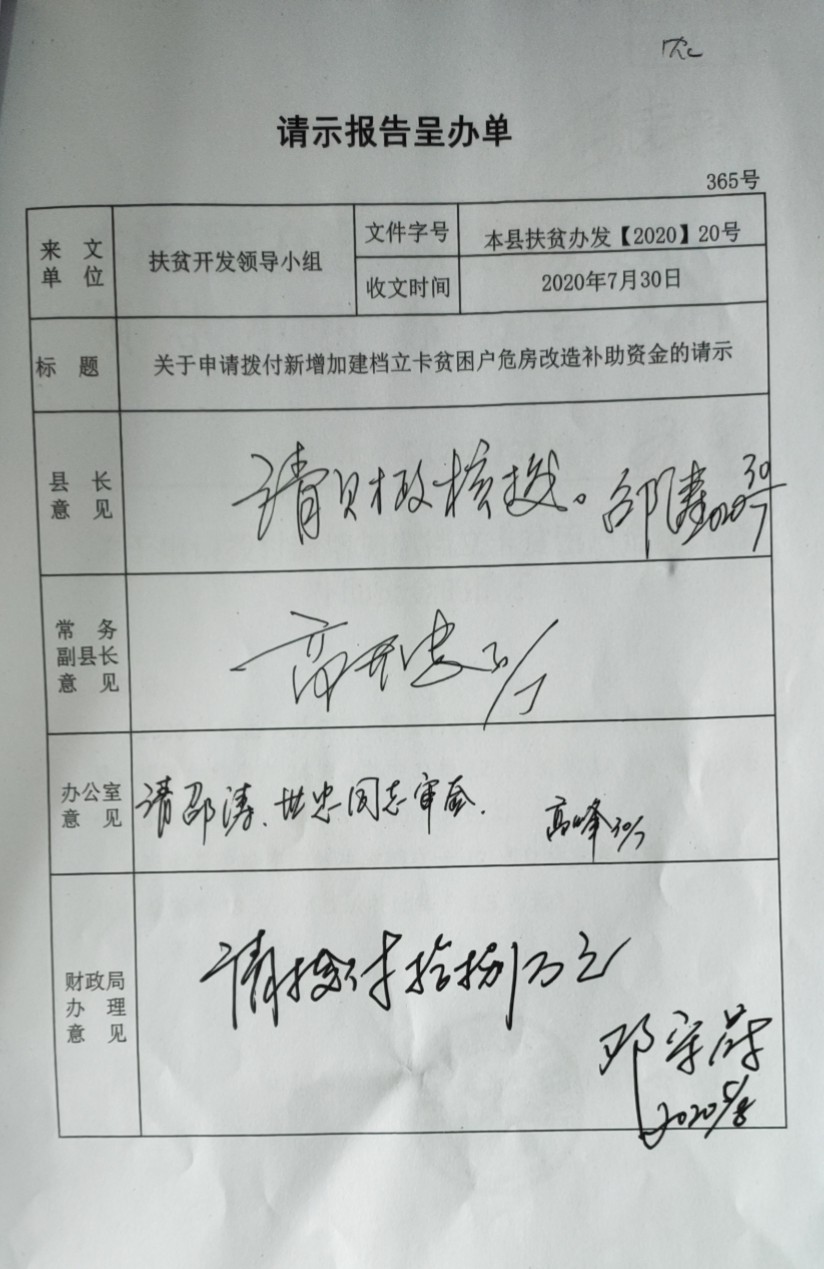 农
请示报告呈办单
365号
来文单位
扶贫开发领导小组
文件字号
本县扶贫办发【2020】20号
收文时间
2020年7月30日
标题
关于申请拨付新增加建档立卡贫困户危房改造补助资金的请示
县长意见
请财政核拨。邵涛2020 30/7
常务副县长意见
30/7
办公室意见
请邵涛、世忠同志审签.
高峰30/7
财政局办理意见
请拨付拾捌万元
2020 5/8